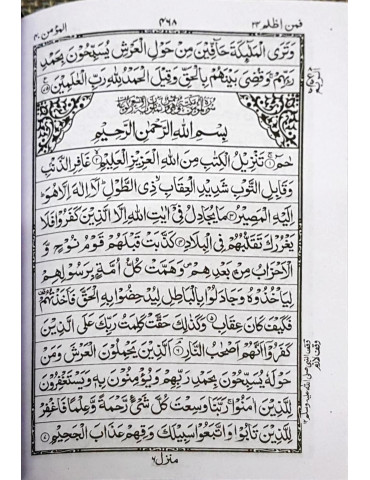 المؤمن ٤٠
٤٦٨
فمن اظلم ٢٤
وَتَرَى الْمَلٰٓئِكَةَ حَآفِّيْنَ مِنْ حَوْلِ الْعَرْشِ يُسَبِّحُوْنَ بِحَمْدِ
رَبِّهِمْ ۚ وَقُضِيَ بَيْنَهُمْ بِالْحَقِّ وَقِيْلَ الْحَمْدُ لِلّٰهِ رَبِّ الْعٰلَمِيْنَ ﴿٧٥﴾
بِسْمِ اللّٰهِ الرَّحْمٰنِ الرَّحِيْمِ
حٰمٓ ﴿١﴾ تَنْزِيْلُ الْكِتٰبِ مِنَ اللّٰهِ الْعَزِيْزِ الْعَلِيْمِ ﴿٢﴾ غَافِرِ الذَّنْۢبِ
وَقَابِلِ التَّوْبِ شَدِيْدِ الْعِقَابِ ذِى الطَّوْلِ ؕ لَآ اِلٰهَ اِلَّا هُوَ ؕ
اِلَيْهِ الْمَصِيْرُ ﴿٣﴾ مَا يُجَادِلُ فِيْٓ اٰيٰتِ اللّٰهِ اِلَّا الَّذِيْنَ كَفَرُوْا فَلَا
يَغْرُرْكَ تَقَلُّبُهُمْ فِى الْبِلَادِ ﴿٤﴾ كَذَّبَتْ قَبْلَهُمْ قَوْمُ نُوْحٍ وَّ
الْاَحْزَابُ مِنْۢ بَعْدِهِمْ ۪ وَهَمَّتْ كُلُّ اُمَّةٍۭ بِرَسُوْلِهِمْ
لِيَاْخُذُوْهُ وَجَادَلُوْا بِالْبَاطِلِ لِيُدْحِضُوْا بِهِ الْحَقَّ فَاَخَذْتُهُمْ
فَكَيْفَ كَانَ عِقَابِ ﴿٥﴾ وَكَذٰلِكَ حَقَّتْ كَلِمَتُ رَبِّكَ عَلَى الَّذِيْنَ
كَفَرُوْٓا اَنَّهُمْ اَصْحٰبُ النَّارِ ﴿٦﴾ اَلَّذِيْنَ يَحْمِلُوْنَ الْعَرْشَ وَمَنْ
حَوْلَهٗ يُسَبِّحُوْنَ بِحَمْدِ رَبِّهِمْ وَيُؤْمِنُوْنَ بِهٖ وَيَسْتَغْفِرُوْنَ
لِلَّذِيْنَ اٰمَنُوْا ۚ رَبَّنَا وَسِعْتَ كُلَّ شَيْءٍ رَّحْمَةً وَّعِلْمًا فَاغْفِرْ
لِلَّذِيْنَ تَابُوْا وَاتَّبَعُوْا سَبِيْلَكَ وَقِهِمْ عَذَابَ الْجَحِيْمِ ﴿٧﴾
منزل ٦